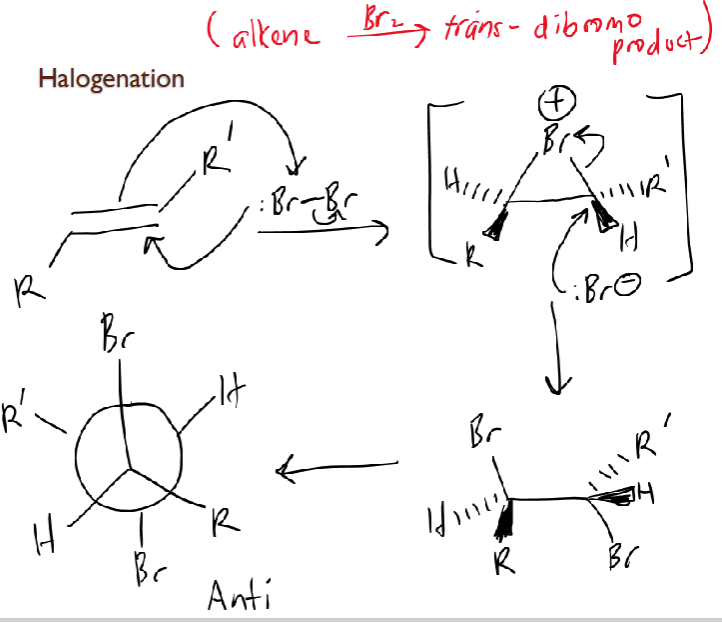 (alkene Br₂ → trans-dibromo product)
Halogenation
R'
:Br-Br
R
⊕
Br
H
R'
R
H
:Br⊖
Br
R'
H
H
R
Br
Br
R'
H
H
R
Br
Anti